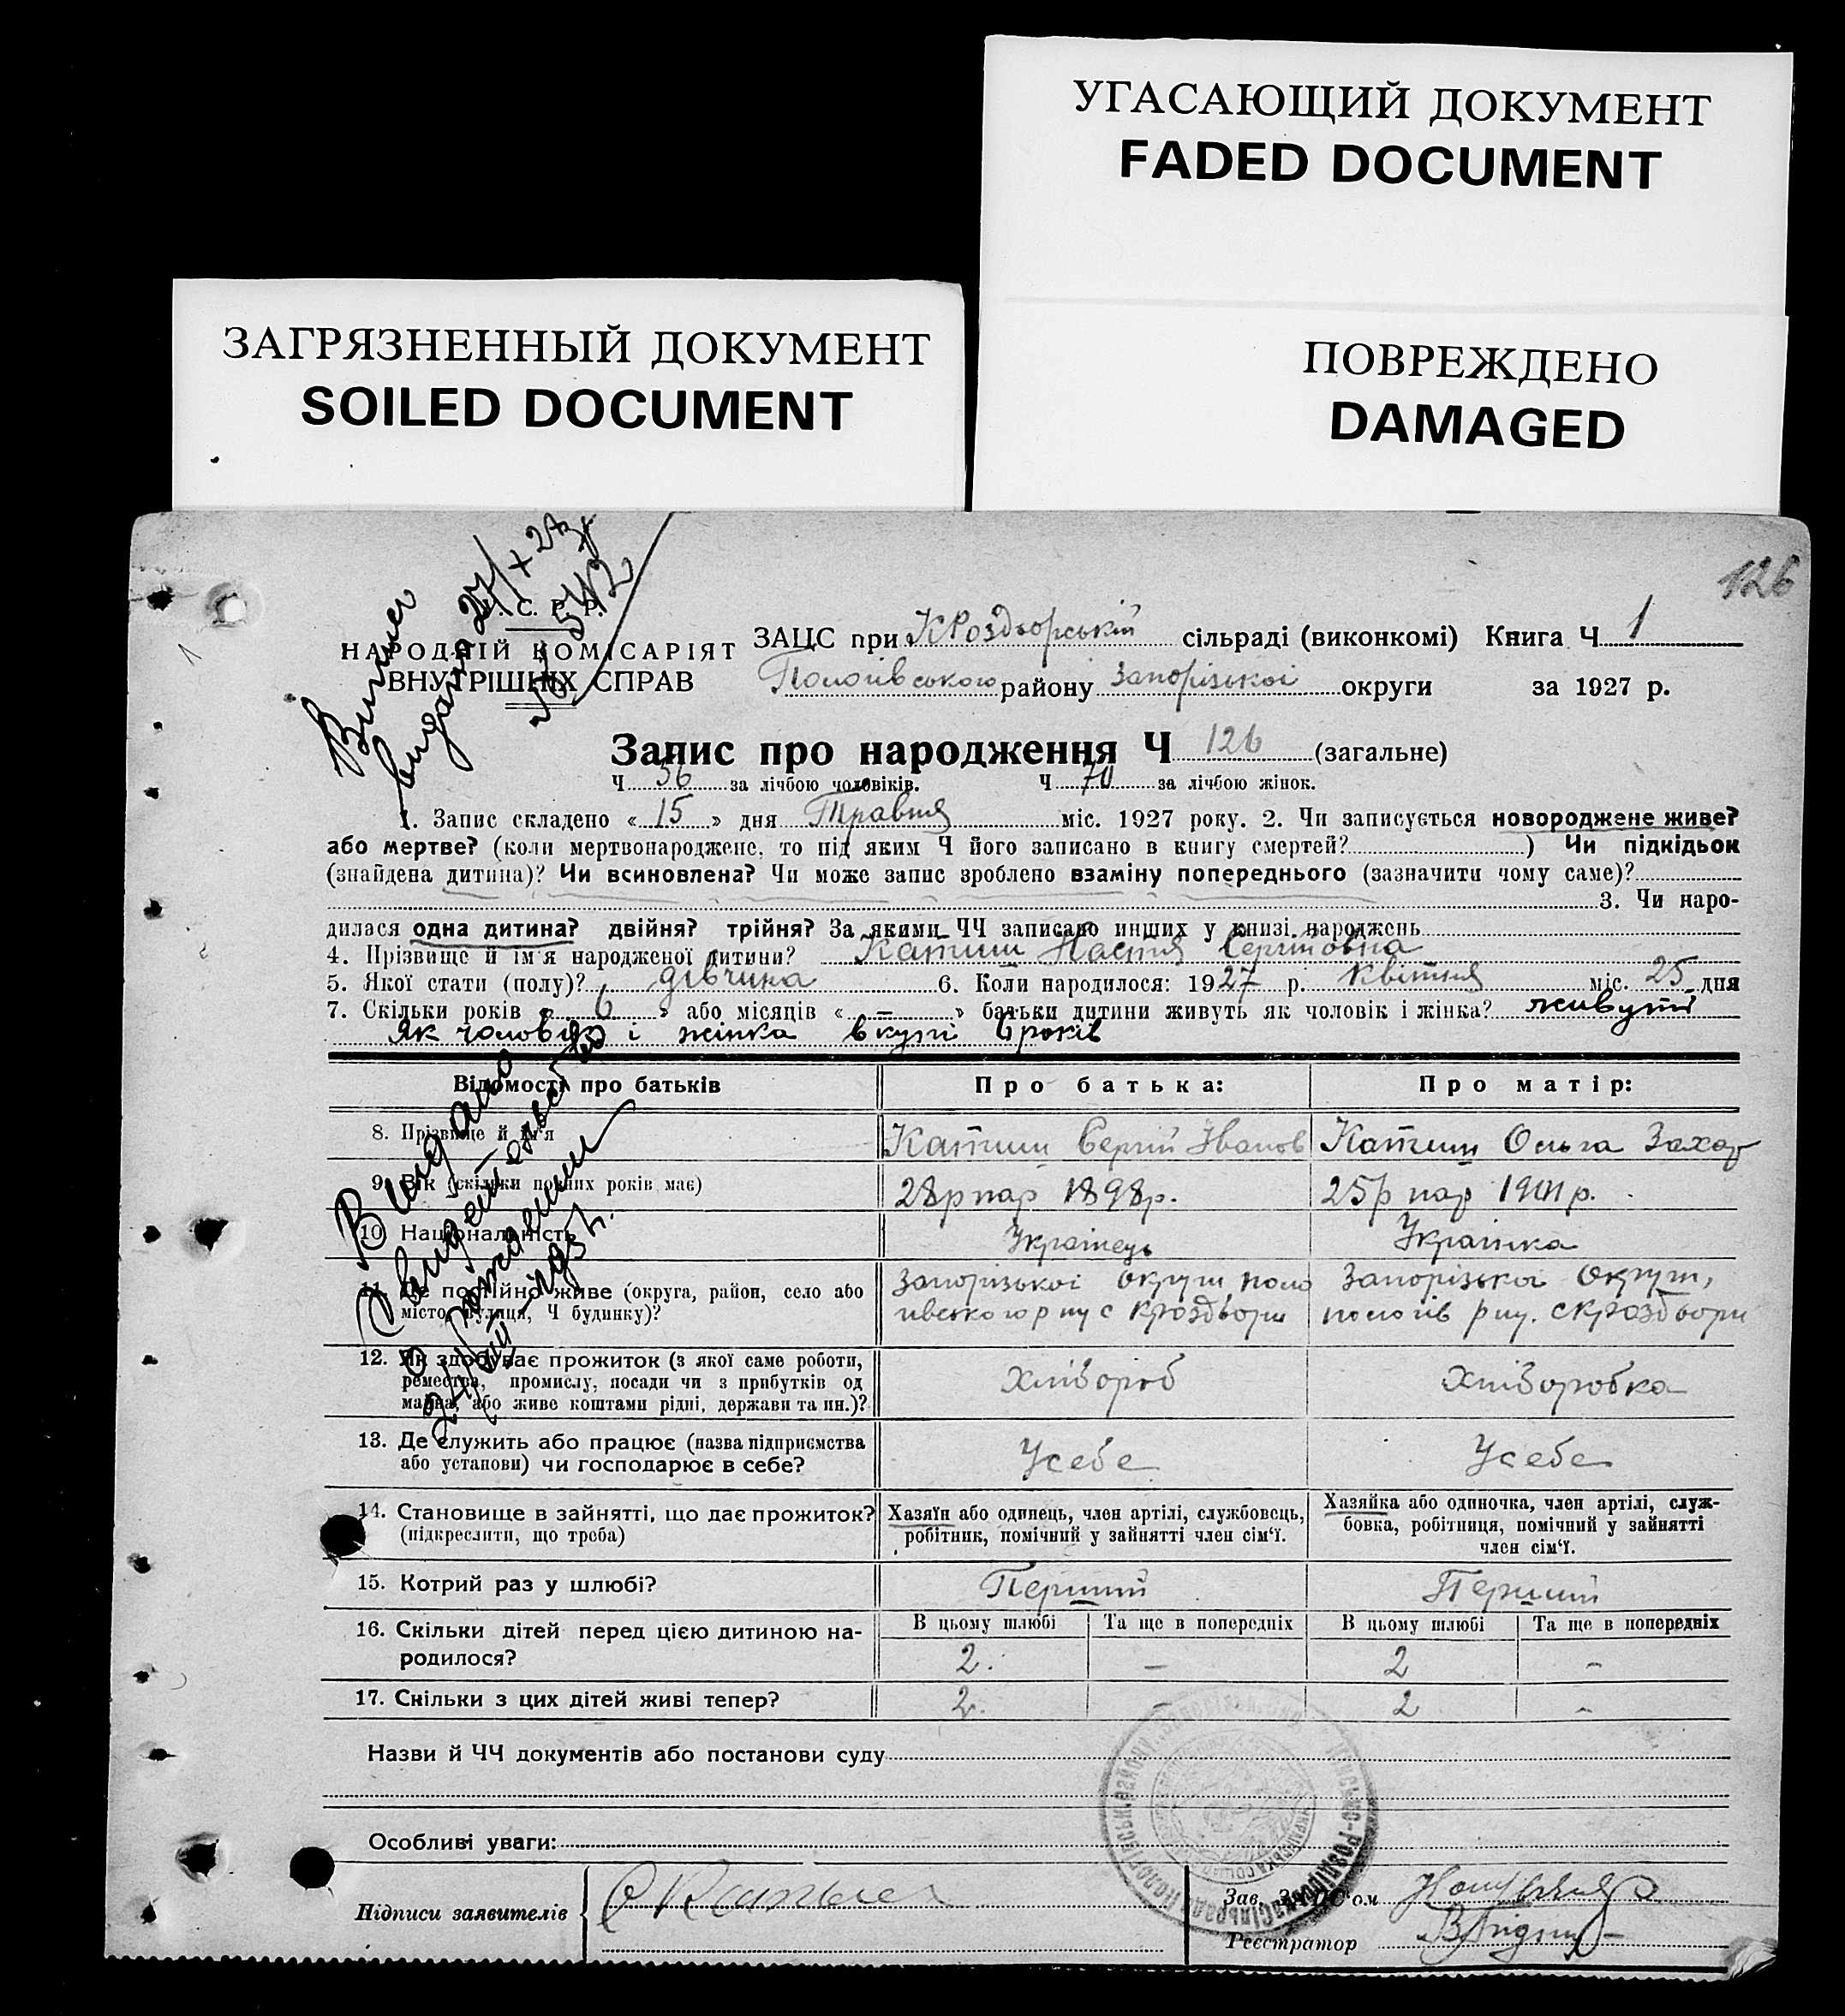 УГАСАЮЩИЙ ДОКУМЕНТ
FADED DOCUMENT
ЗАГРЯЗНЕННЫЙ ДОКУМЕНТ
SOILED DOCUMENT
ПОВРЕЖДЕНО
DAMAGED
126
У. С. Р. Р.
НАРОДНІЙ КОМІСАРІЯТ
ВНУТРІШНІХ СПРАВ
ЗАЦС при КРоздорській сільраді (виконкомі) Книга Ч 1
Пологівського району Запорізької округи за 1927 р.
Запис про народження Ч 126 (загальне)
Ч 56 за лічбою чоловіків. Ч 70 за лічбою жінок.
1. Запис складено « 15 » дня Травня міс. 1927 року. 2. Чи записується новороджене живе?
або мертве? (коли мертвонароджене, то під яким Ч його записано в книгу смертей? ) Чи підкідьок
(знайдена дитина)? Чи всиновлена? Чи може запис зроблено взаміну попереднього (зазначити чому саме)?
3. Чи наро-
дилася одна дитина? двійня? трійня? За якими ЧЧ записано инших у книзі народжень
4. Прізвище й ім'я народженої дитини? Катиш Настя Сергіїовна
5. Якої стати (полу)? дівчина 6. Коли народилося: 1927 р. Квітня міс. 25 дня
7. Скільки років « 6 » або місяців « – » батьки дитини живуть як чоловік і жінка? живуть
як чоловік і жінка вкупі 6 років
Відомості про батьків Про батька: Про матір:
8. Прізвище й ім'я Катиш Сергій Іванов Катиш Ольга Захар
9. Вік (скільки повних років має) 28р нар 1898р. 25р нар 1901р.
10. Національність Українець Українка
11. Де постійно живе (округа, район, село або
місто, вулиця, Ч будинку)?
Запорізької округи, поло
гівського рну с Кроздори
Запорізької Округи,
пологів рну. с Кроздори
12. Як здобуває прожиток (з якої саме роботи,
ремества, промислу, посади чи з прибутків од
майна, або живе коштами рідні, держави та ин.)?
Хлібороб Хліборобка
13. Де служить або працює (назва підприємства
або установи) чи господарює в себе?
Усебе Усебе
14. Становище в зайнятті, що дає прожиток?
(підкреслити, що треба)
Хазяїн або одинець, член артілі, службовець,
робітник, помічний у зайнятті член сім'ї.
Хазяйка або одиночка, член артілі, служ-
бовка, робітниця, помічний у зайнятті
член сім'ї.
15. Котрий раз у шлюбі? Перший Перший
16. Скільки дітей перед цією дитиною на-
родилося?
В цьому шлюбі Та ще в попередніх В цьому шлюбі Та ще в попередніх
2. – 2 –
17. Скільки з цих дітей живі тепер? 2. – 2 –
Назви й ЧЧ документів або постанови суду
Особливі уваги:
Підписи заявителів
Зав. ЗАЦС'ом
Реєстратор